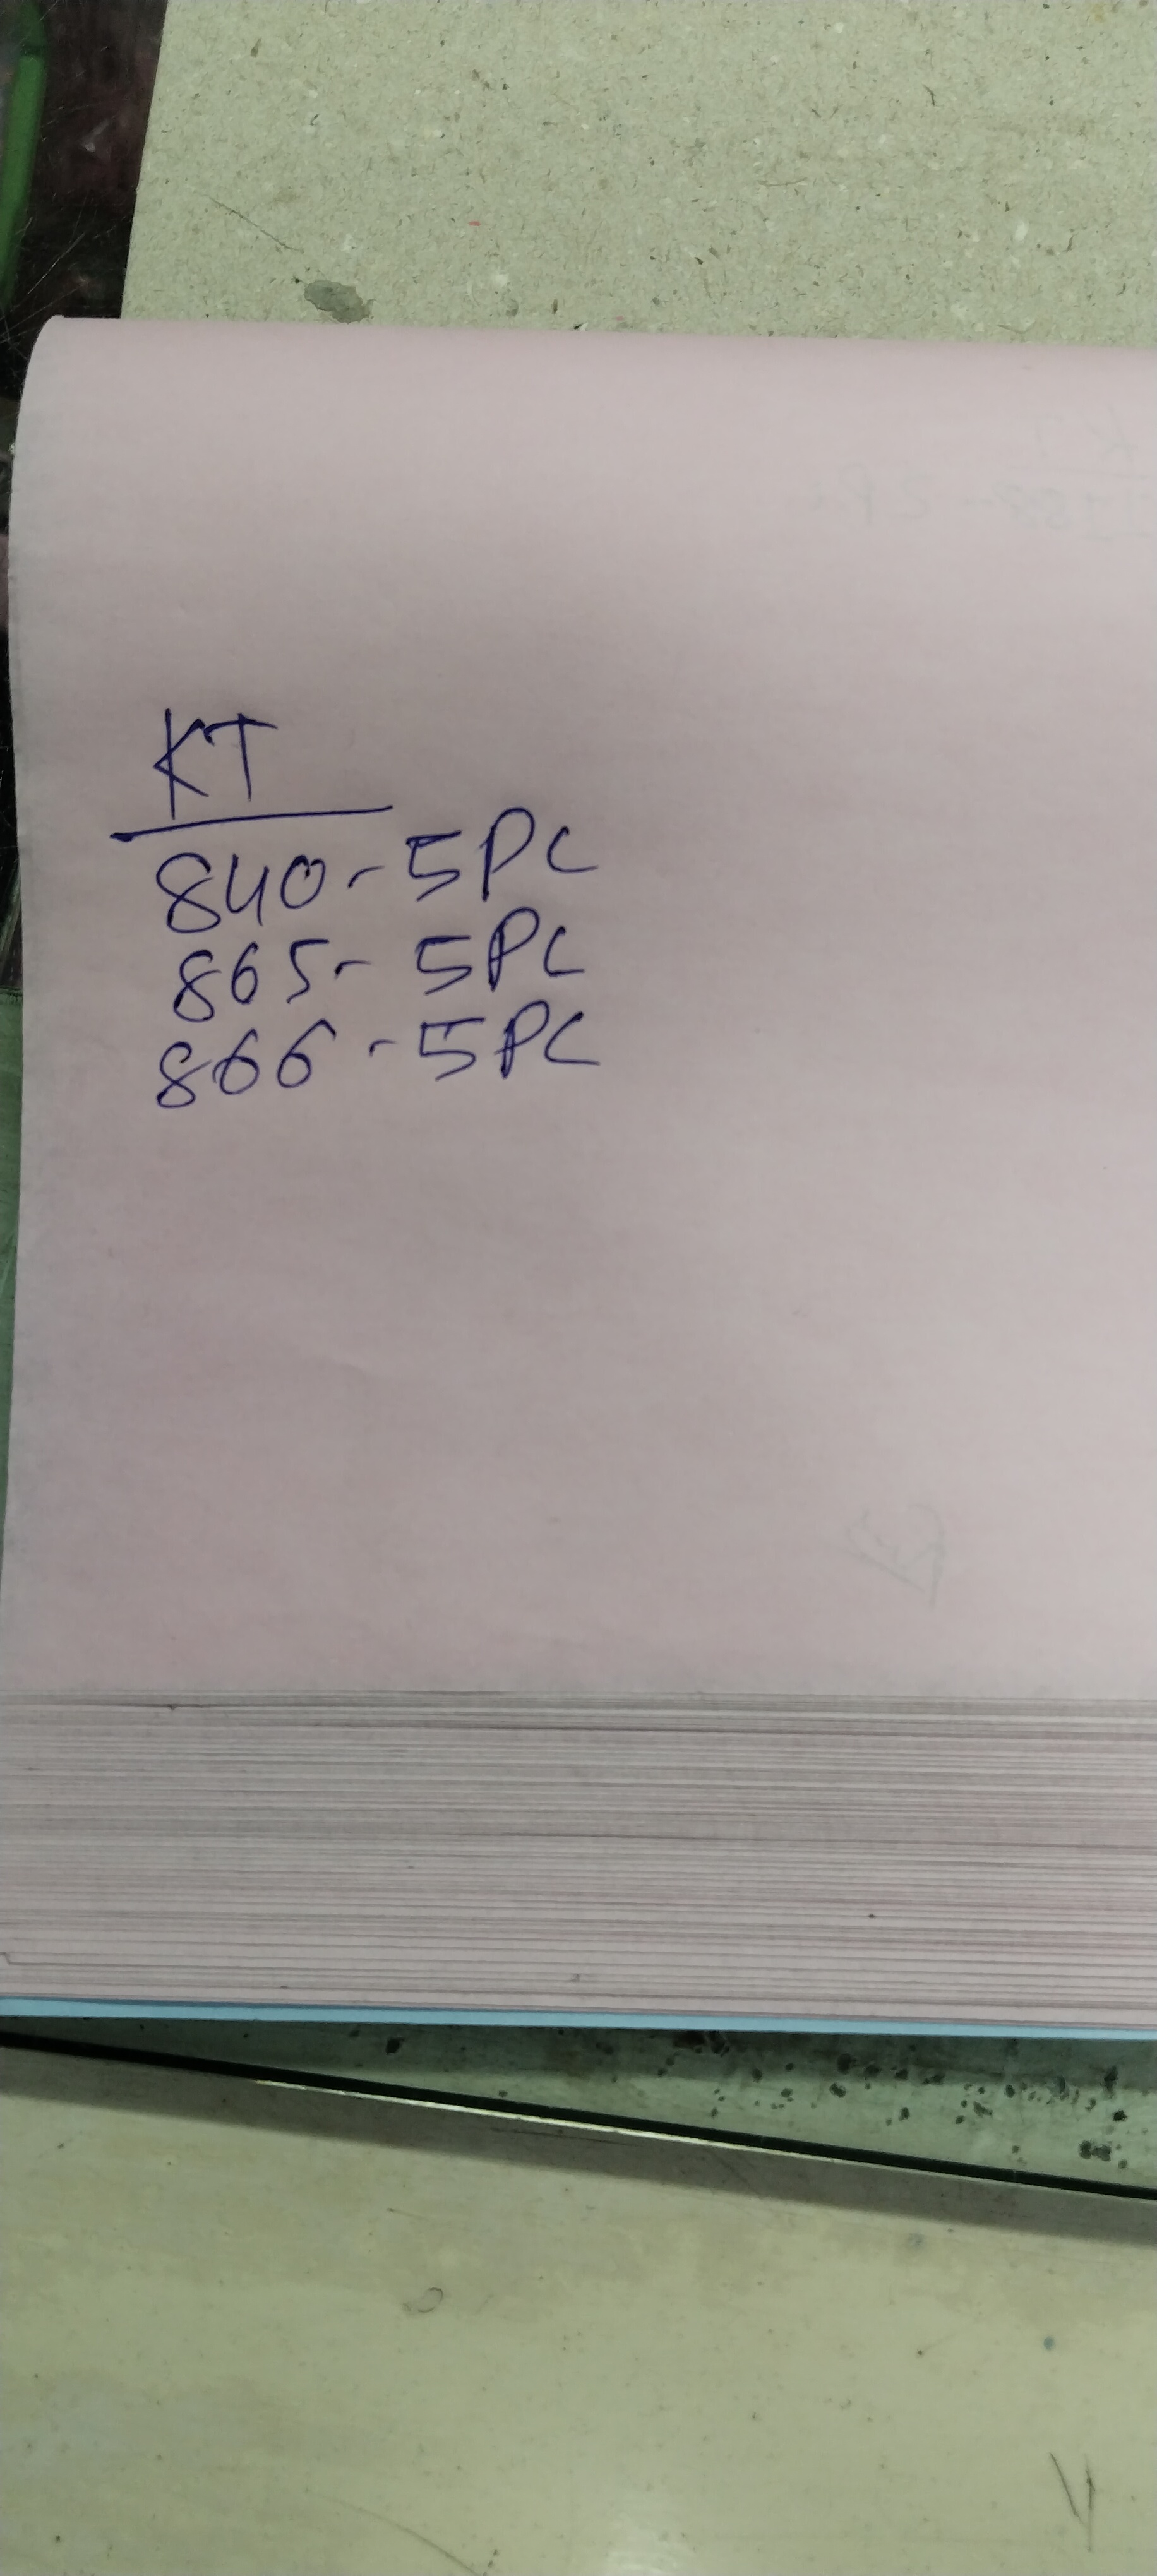 KT
840-5PC
865-5PC
866-5PC